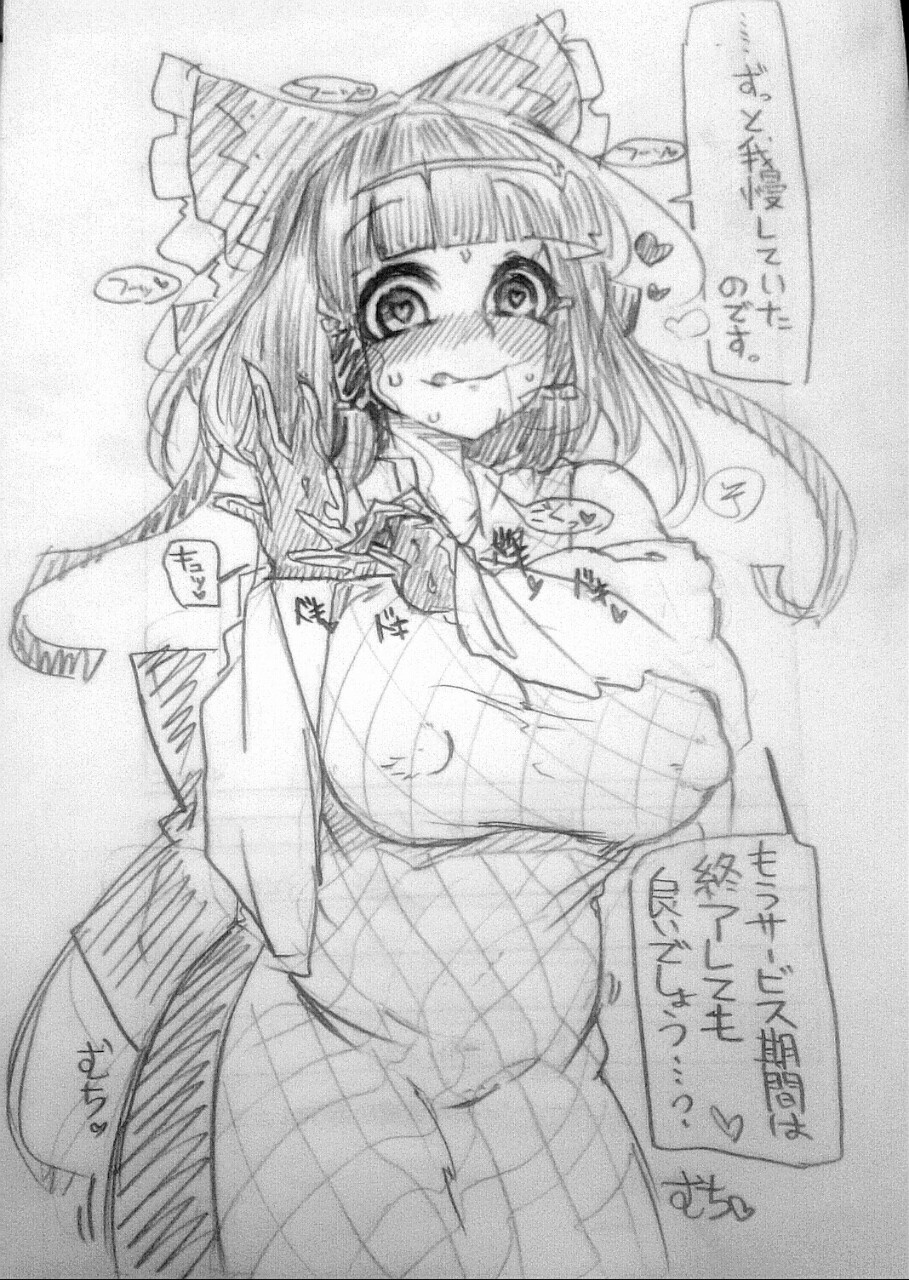 ……ずっと、我慢していた
のです。
フーッ♡
フーッ♡
フーッ♡
そ
ごくっ♡
キュッ♡
ドキ♡
ドキ
ドキ♡
ドキ♡
もうサービス期間は
終了しても
良いでしょう……？♡
むち♡
むち♡